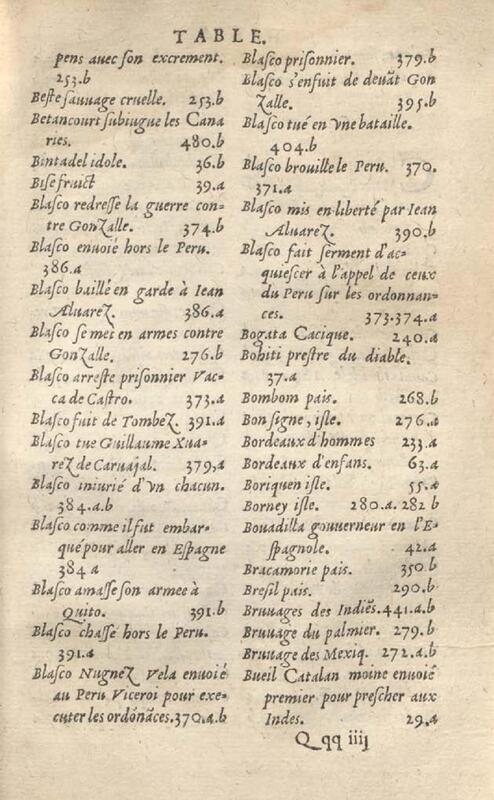 TABLE.
pens auec son excrement.
253.b
Beste sauuage cruelle. 253.b
Betancourt subiugue les Cana
ries. 480.b
Bintadel idole. 36.b
Bise fruict 39.a
Blasco redresse la guerre con-
tre Gonzalle. 374.b
Blasco enuoié hors le Peru.
386.a
Blasco baillé en garde à Iean
Aluarez. 386.a
Blasco se met en armes contre
Gonzalle. 276.b
Blasco arreste prisonnier Vac-
ca de Castro. 373.a
Blasco fuit de Tombez. 391.a
Blasco tue Guillaume Xua-
rez de Caruajal. 379,a
Blasco iniurié d'vn chacun.
384.a.b
Blasco comme il fut embar-
qué pour aller en Espagne
384 a
Blasco amasse son armee à
Quito. 391.b
Blasco chassé hors le Peru.
391.a
Blasco Nugnez Vela enuoié
au Peru Viceroi pour exe-
cuter les ordonãces. 370.a.b
Blasco prisonnier. 379.b
Blasco s'enfuit de deuãt Gon
zalle. 395.b
Blasco tué en vne bataille.
404.b
Blasco brouille le Peru. 370.
371.a
Blasco mis en liberté par Iean
Aluarez. 390.b
Blasco fait serment d'ac-
quiescer à l'appel de ceux
du Peru sur les ordonnan-
ces. 373.374.a
Bogata Cacique. 240.a
Bohiti prestre du diable.
37.a
Bombom pais. 268.b
Bon signe, isle. 276.a
Bordeaux d'hommes 233.a
Bordeaux d'enfans. 63.a
Boriquen isle. 55.a
Borney isle. 280.a. 282 b
Bouadilla gouuerneur en l'E-
spagnole. 42.a
Bracamorie pais. 350.b
Bresil pais. 290.b
Bruuages des Indiẽs. 441.a.b
Bruuage du palmier. 279.b
Bruuage des Mexiq. 272.a.b
Bueil Catalan moine enuoié
premier pour prescher aux
Indes. 29.a
Qqq iiij